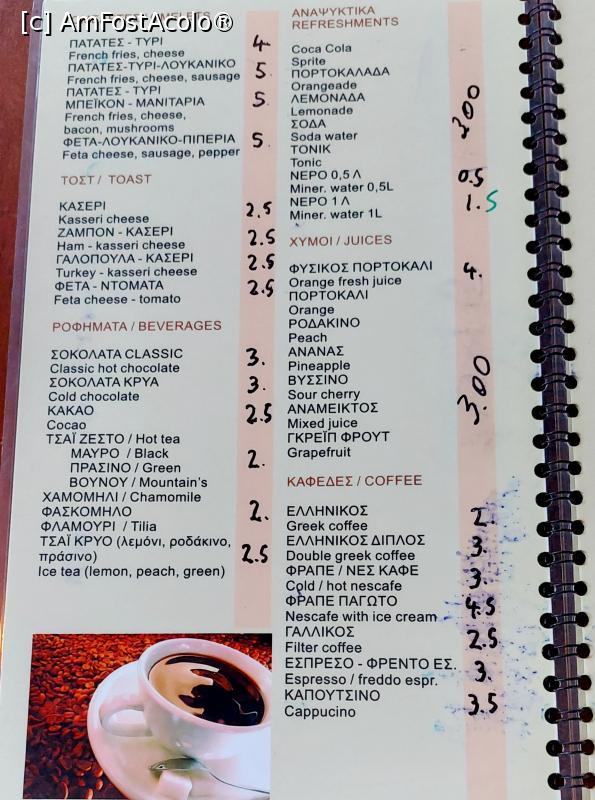 [c] AmFostAcolo®
ΠΑΤΑΤΕΣ - ΤΥΡΙ 4.
French fries, cheese
ΠΑΤΑΤΕΣ-ΤΥΡΙ-ΛΟΥΚΑΝΙΚΟ 5.
French fries, cheese, sausage
ΠΑΤΑΤΕΣ - ΤΥΡΙ
ΜΠΕΪΚΟΝ - ΜΑΝΙΤΑΡΙΑ 5.
French fries, cheese,
bacon, mushrooms
ΦΕΤΑ-ΛΟΥΚΑΝΙΚΟ-ΠΙΠΕΡΙΑ 5.
Feta cheese, sausage, pepper
ΤΟΣΤ / TOAST
ΚΑΣΕΡΙ 2.5
Kasseri cheese
ΖΑΜΠΟΝ - ΚΑΣΕΡΙ 2.5
Ham - kasseri cheese
ΓΑΛΟΠΟΥΛΑ - ΚΑΣΕΡΙ 2.5
Turkey - kasseri cheese
ΦΕΤΑ - ΝΤΟΜΑΤΑ 2.5
Feta cheese - tomato
ΡΟΦΗΜΑΤΑ / BEVERAGES
ΣΟΚΟΛΑΤΑ CLASSIC 3.
Classic hot chocolate
ΣΟΚΟΛΑΤΑ ΚΡΥΑ 3.
Cold chocolate
ΚΑΚΑΟ 2.5
Cocao
ΤΣΑΪ ΖΕΣΤΟ / Hot tea
ΜΑΥΡΟ / Black 2.
ΠΡΑΣΙΝΟ / Green
ΒΟΥΝΟΥ / Mountain's
ΧΑΜΟΜΗΛΙ / Chamomile
ΦΑΣΚΟΜΗΛΟ 2.
ΦΛΑΜΟΥΡΙ / Tilia
ΤΣΑΪ ΚΡΥΟ (λεμόνι, ροδάκινο, 2.5
πράσινο)
Ice tea (lemon, peach, green)
ΑΝΑΨΥΚΤΙΚΑ
REFRESHMENTS
Coca Cola
Sprite
ΠΟΡΤΟΚΑΛΑΔΑ
Orangeade
ΛΕΜΟΝΑΔΑ 3.00
Lemonade
ΣΟΔΑ
Soda water
ΤΟΝΙΚ
Tonic
ΝΕΡΟ 0,5 Λ 0.5
Miner. water 0,5L
ΝΕΡΟ 1 Λ 1.5
Miner. water 1L
ΧΥΜΟΙ / JUICES
ΦΥΣΙΚΟΣ ΠΟΡΤΟΚΑΛΙ 4.
Orange fresh juice
ΠΟΡΤΟΚΑΛΙ
Orange
ΡΟΔΑΚΙΝΟ
Peach
ΑΝΑΝΑΣ
Pineapple
ΒΥΣΣΙΝΟ 3.00
Sour cherry
ΑΝΑΜΕΙΚΤΟΣ
Mixed juice
ΓΚΡΕΪΠ ΦΡΟΥΤ
Grapefruit
ΚΑΦΕΔΕΣ / COFFEE
ΕΛΛΗΝΙΚΟΣ 2.
Greek coffee
ΕΛΛΗΝΙΚΟΣ ΔΙΠΛΟΣ 3.
Double greek coffee
ΦΡΑΠΕ / ΝΕΣ ΚΑΦΕ 3.
Cold / hot nescafe
ΦΡΑΠΕ ΠΑΓΩΤΟ 4.5
Nescafe with ice cream
ΓΑΛΛΙΚΟΣ 2.5
Filter coffee
ΕΣΠΡΕΣΟ - ΦΡΕΝΤΟ ΕΣ. 3.
Espresso / freddo espr.
ΚΑΠΟΥΤΣΙΝΟ 3.5
Cappucino